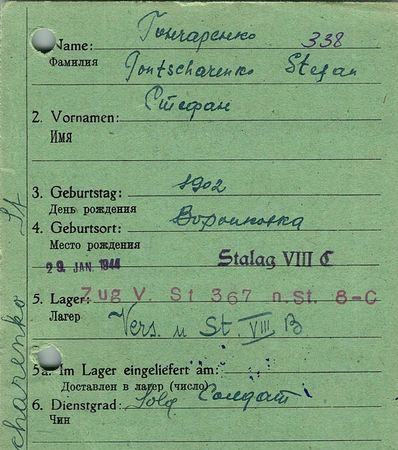 Name: Гончаренко 338
Фамилия Gontscharenko Stefan
2. Vornamen: Стефан
Имя
3. Geburtstag: 1902
День рождения
4. Geburtsort:
Место рождения
29. JAN. 1944 Stalag VIII C
5. Lager: Zug V. St 367 n. St. 8-C
Лагер Vers. n St. VIII B
5a. Im Lager eingeliefert am:
Доставлен в лагер (число)
6. Dienstgrad: Sold Солдат
Чин
charenko St